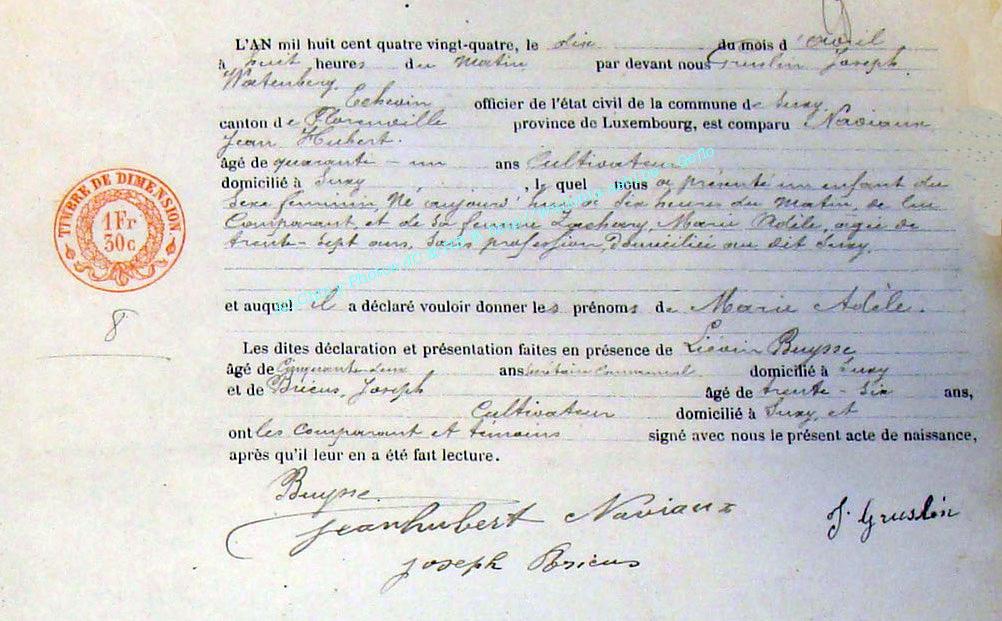 L'AN mil huit cent quatre vingt-quatre, le dix du mois d'avril
à huit heures du matin par devant nous Gruslin Joseph
Watenberg,
Echevin officier de l'état civil de la commune de Suxy
canton de Florenville province de Luxembourg, est comparu Naviaux
Jean Hubert.
âgé de quarante-un ans Cultivateur
domicilié à Suxy, lequel nous a présenté un enfant du
Sexe féminin Né aujourd'hui à six heures du matin, de lui
Comparant et de sa femme Zachary, Marie Adèle, agée de
trente-sept ans, sans profession, domiciliée au dit Suxy.
et auquel il a déclaré vouloir donner les prénoms de Marie Adèle.
Les dites déclaration et présentation faites en présence de Liévin Buysse
âgé de Cinquante-deux ans Secrétaire Communal domicilié à Suxy
et de Bricus, Joseph âgé de trente-six ans,
Cultivateur domicilié à Suxy, et
ont les comparant et témoins signé avec nous le présent acte de naissance,
après qu'il leur en a été fait lecture.
TIMBRE DE DIMENSION
1 Fr
30c
8
Buysse
Jeanhubert Naviaux
J. Gruslin
Joseph Bricus